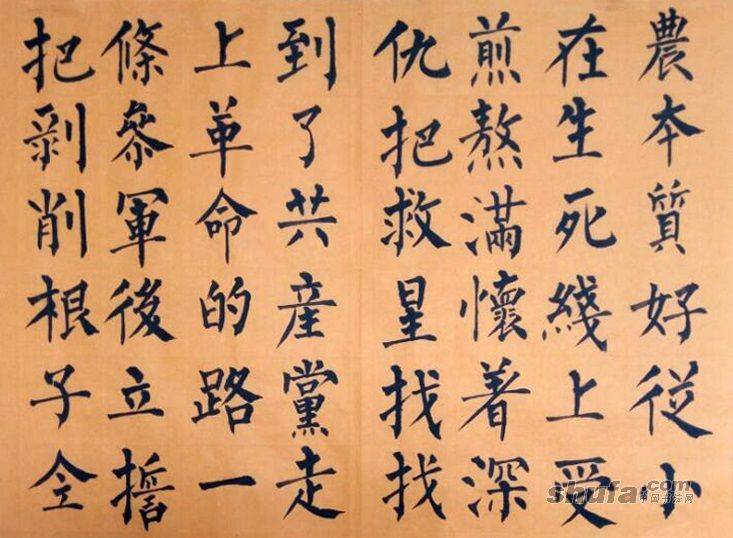 農本質好從小
在生死綫上受
煎熬滿懷着深
仇把救星找找
到了共産黨走
上革命的路一
條參軍後立誓
把剝削根子全
shufa.com
中国书法网